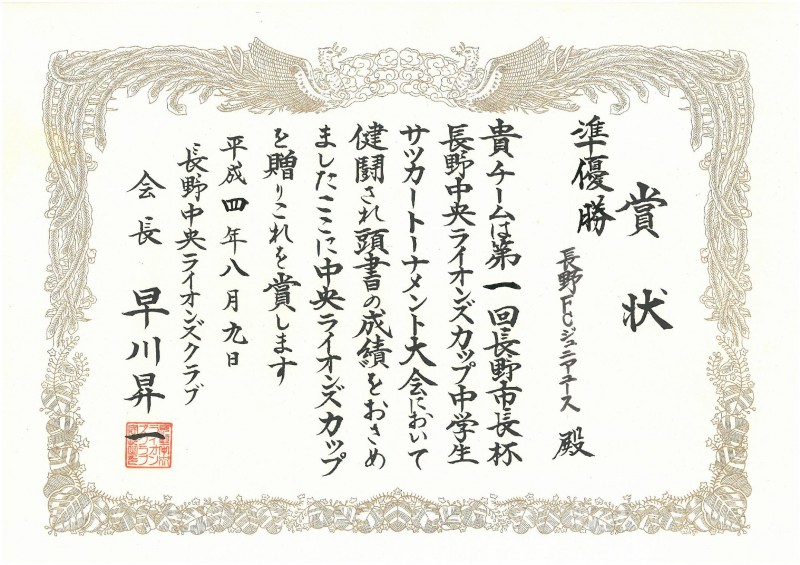 賞状
準優勝
長野FCジュニアユース 殿
貴チームは第一回長野市長杯
長野中央ライオンズカップ中学生
サッカートーナメント大会において
健闘され頭書の成績をおさめ
ましたここに中央ライオンズカップ
を贈りこれを賞します
平成四年八月九日
長野中央ライオンズクラブ
会長 早川昇一